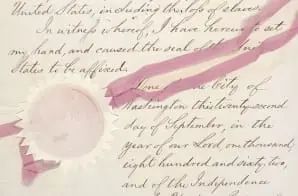 United States, including the loss of slaves.
In witness whereof, I have hereunto set
my hand, and caused the seal of the United
States to be affixed.
Done at the City of
Washington this twenty second
day of September, in the
year of our Lord, one thousand,
eight hundred and sixty, two,
and of the Independence